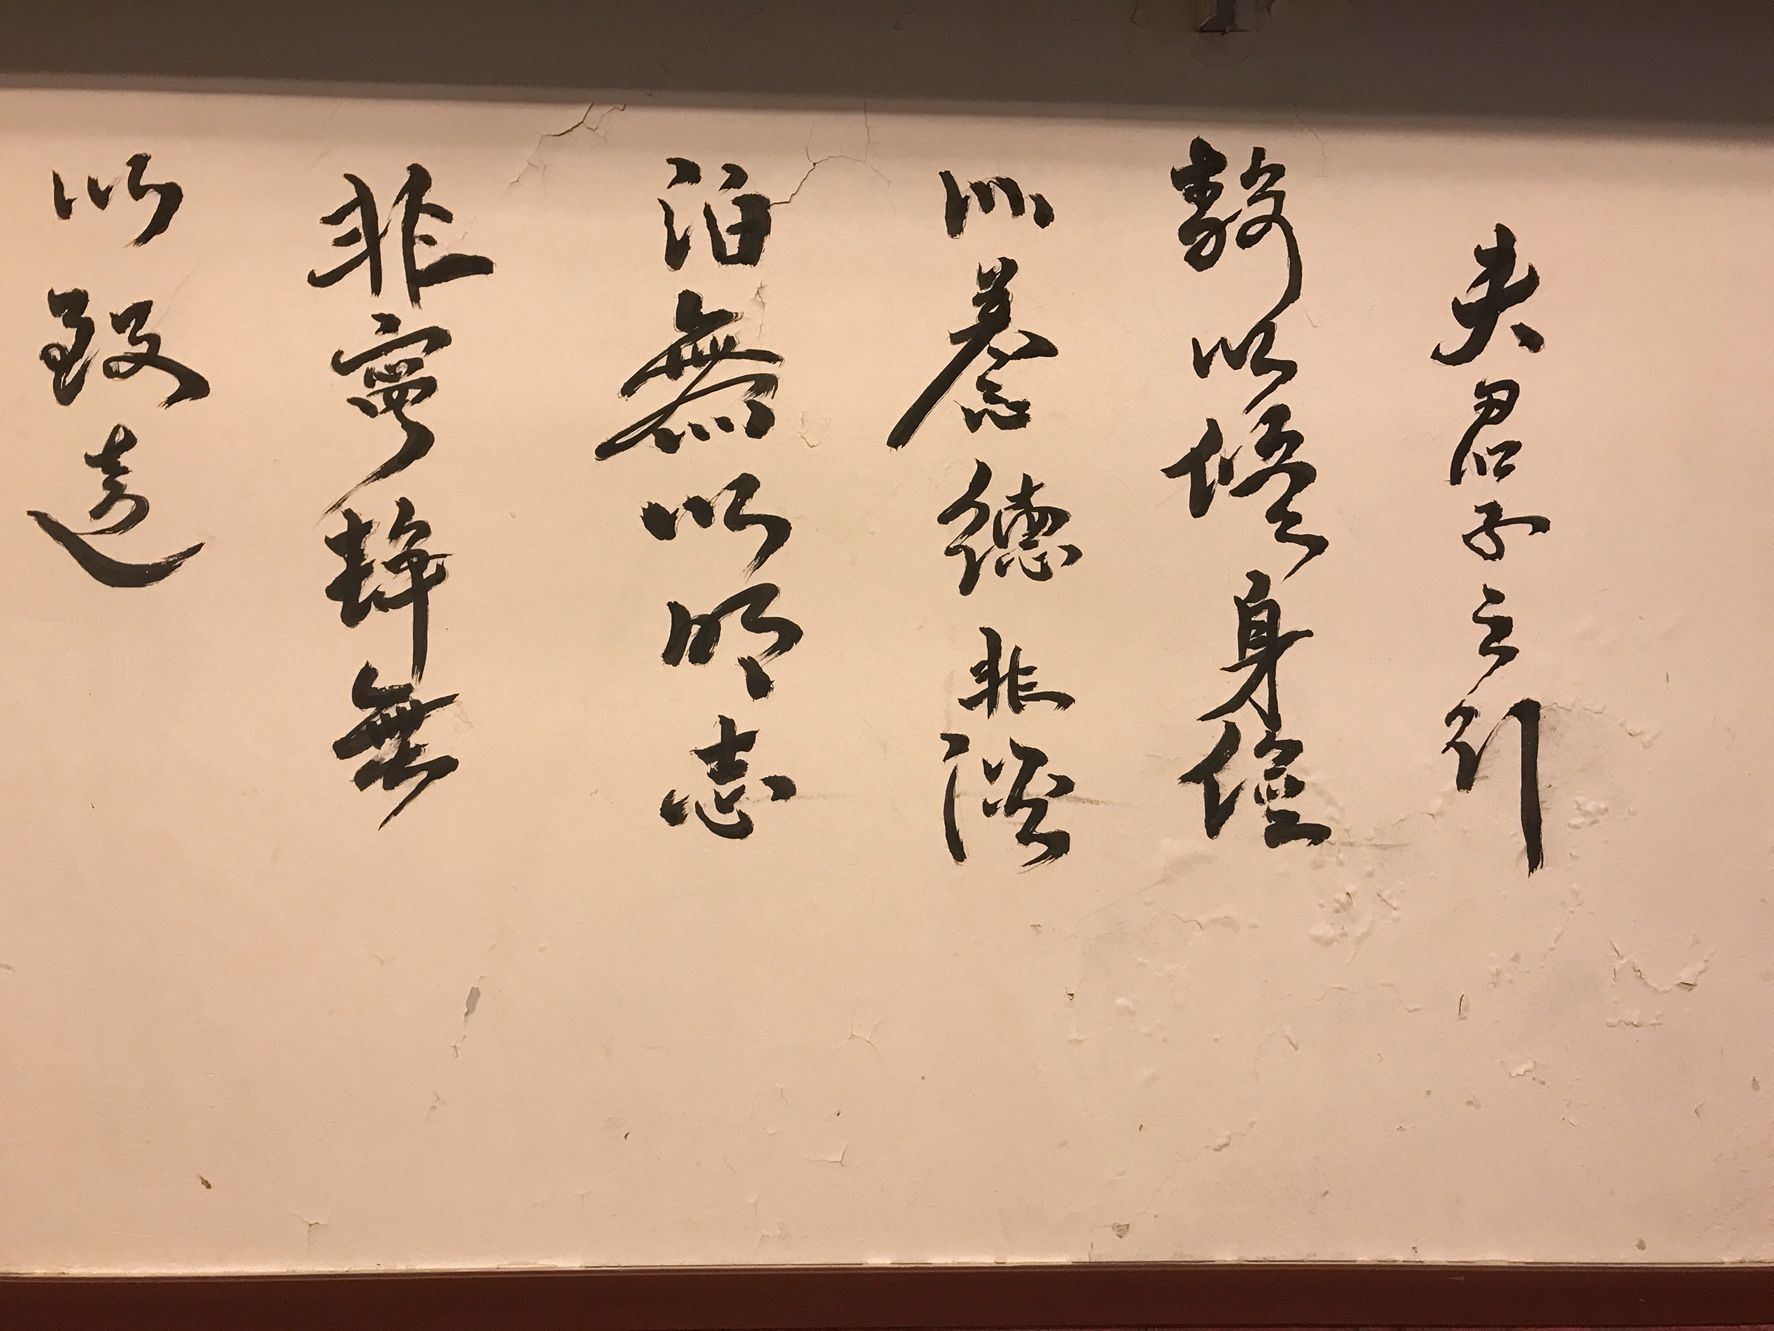 夫君子之行
靜以修身儉
以養德非淡
泊無以明志
非寧靜無
以致遠